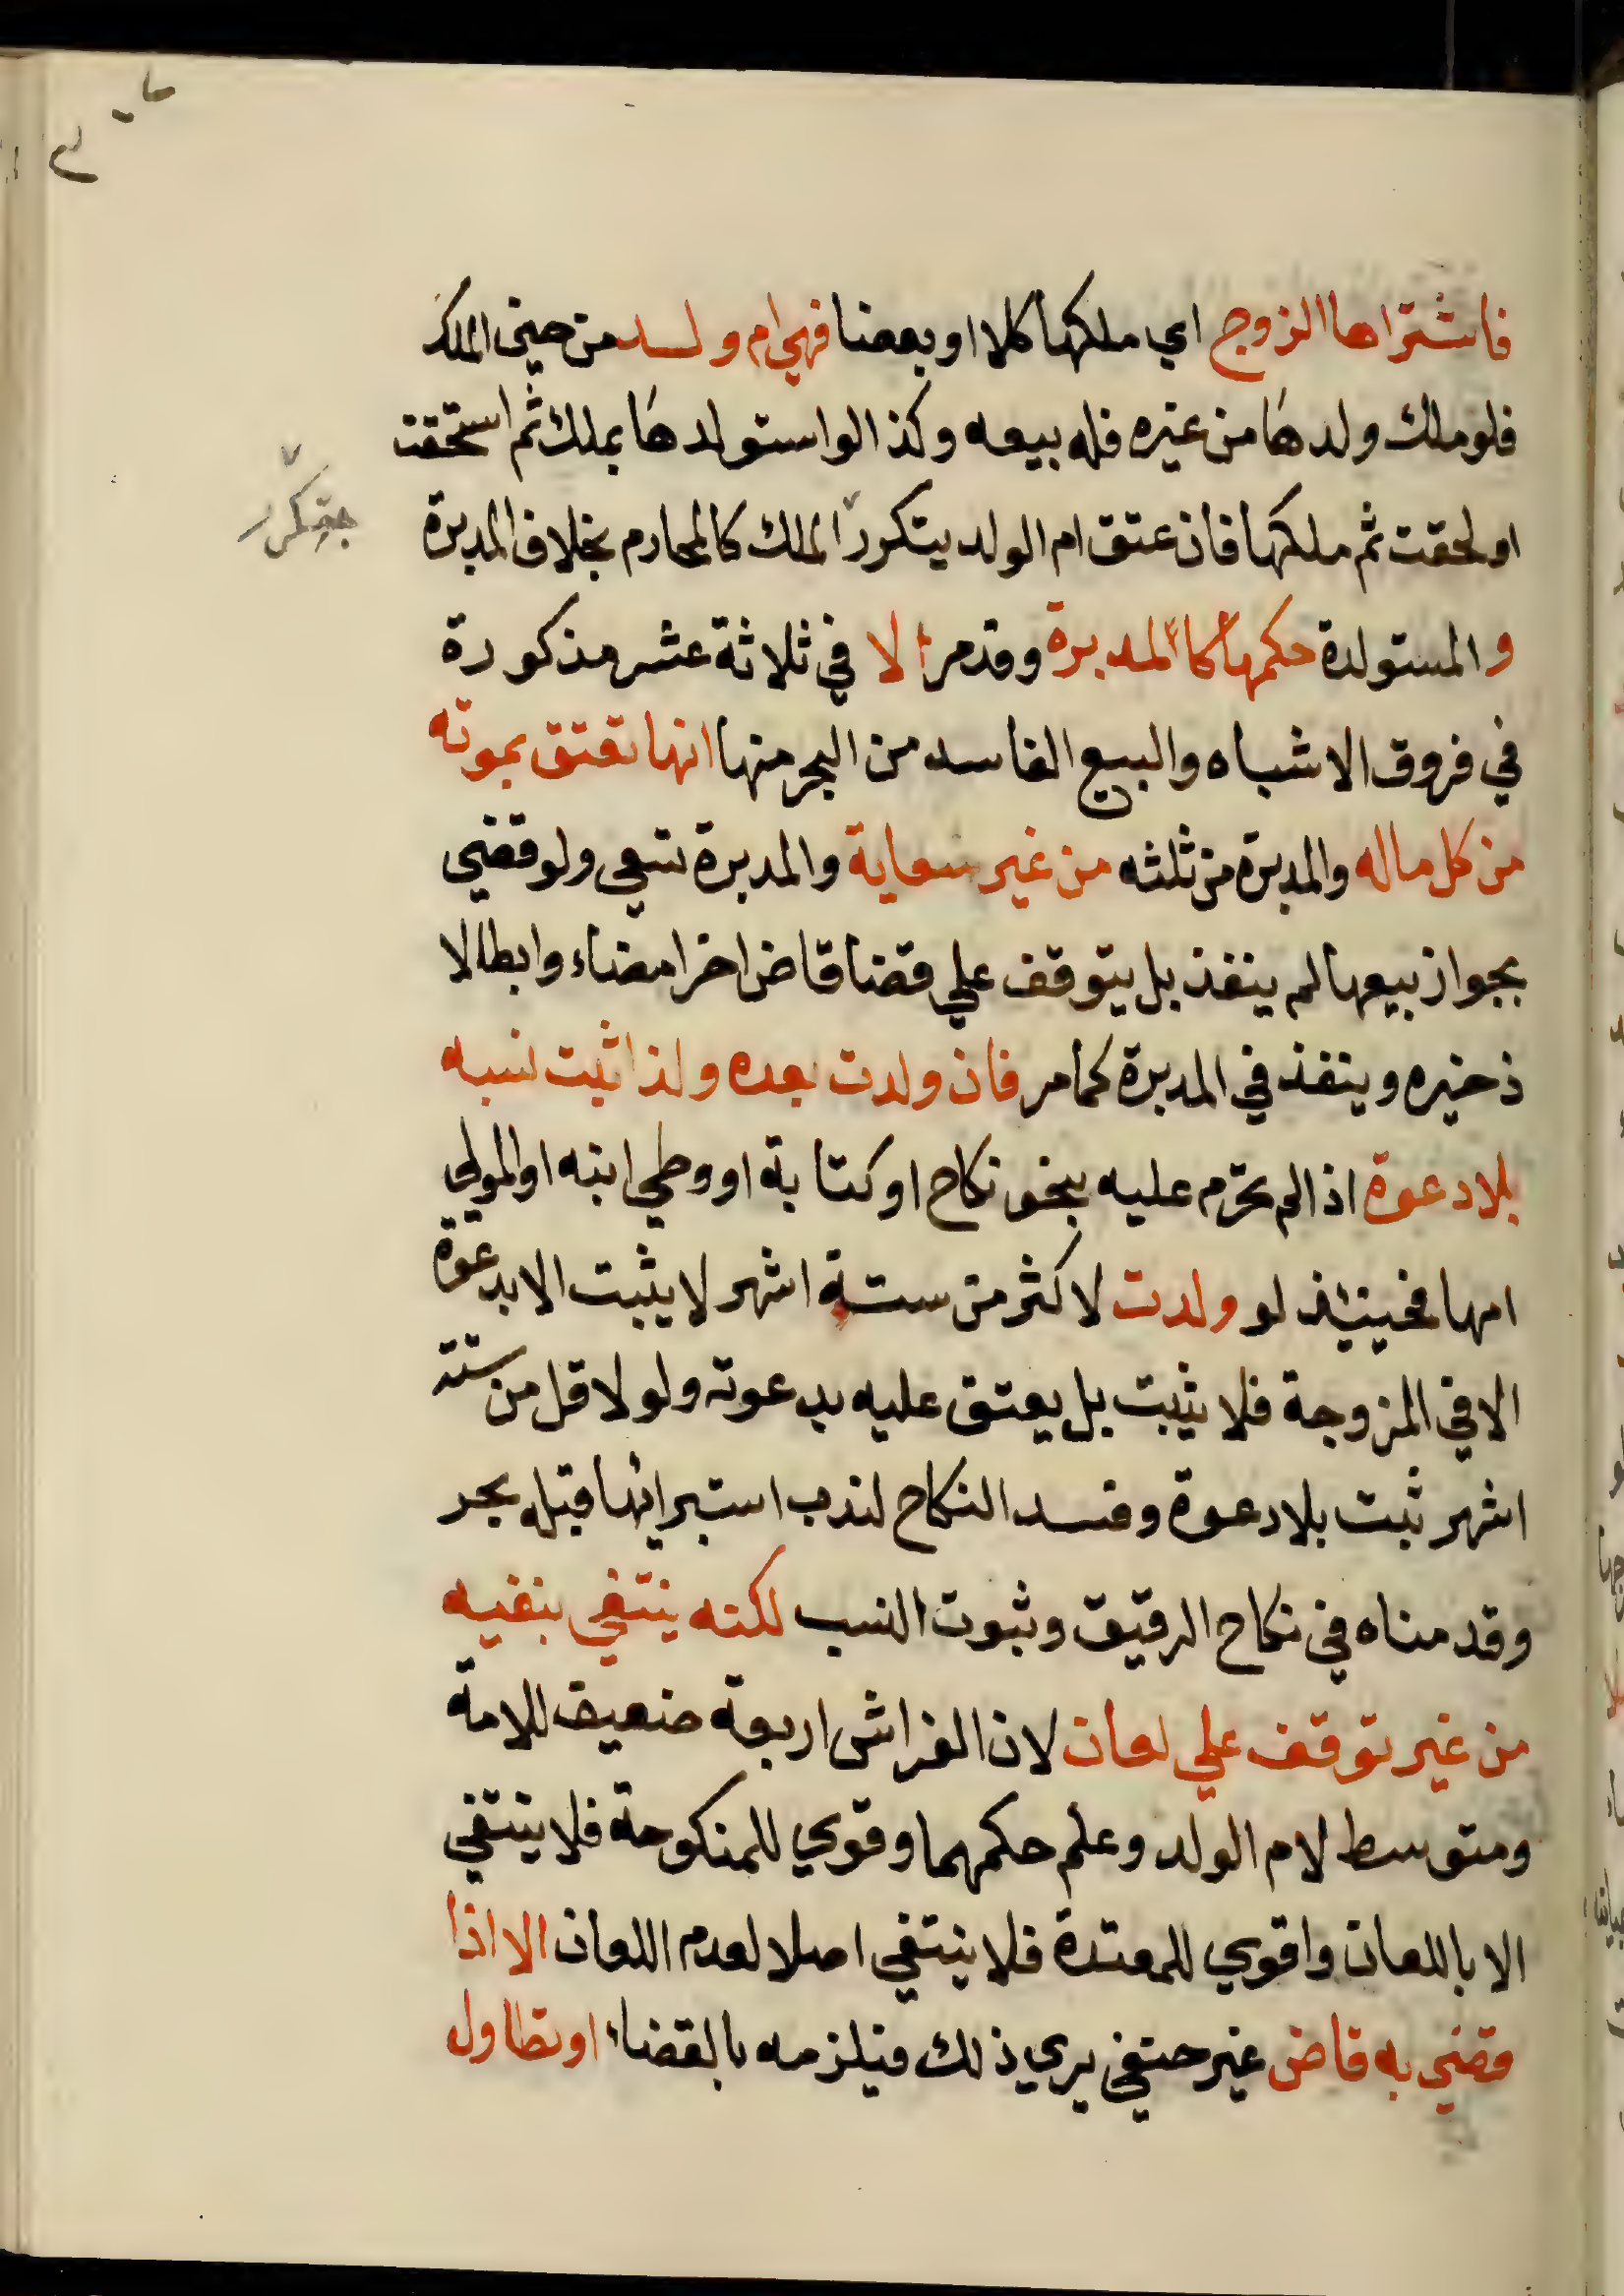 فاشتراها الزوج اي ملكها كلا او بعضا فهي ام ولد من حين الملك
فلو ملك ولدها من غيره فله بيعه وكذا لو استولدها بملك ثم استحقت
او لحقت ثم ملكها فان عتق ام الولد يتكرر الملك كالمحارم بخلاف المدبرة
والمستولدة حكمها كالمدبرة وقد مر الا في ثلاثة عشر مذكورة
في فروق الاشباه والبيع الفاسد من البحر منها انها تعتق بموته
من كل ماله والمدبرة من ثلثه من غير سعاية والمدبرة تسعى ولو قضي
بجواز بيعها لم ينفذ بل يتوقف علي قضا قاض اخر امضاء وابطالا
ذخيره وينفذ في المدبرة كما مر فان ولدت بعده ولدا ثبت نسبه
بلا دعوة اذا لم تحرم عليه بنحو نكاح او كتابة او وطي ابنه او المولي
امها فحينئذ لو ولدت لاكثر من ستة اشهر لا يثبت الا بدعوة
الا في المزوجة فلا يثبت بل يعتق عليه بدعوته ولو لاقل من ستة
اشهر ثبت بلا دعوة وفسد النكاح لندب استبرائها قبله بحر
وقدمناه في نكاح الرقيق وثبوت النسب لكنه ينتفي بنفيه
من غير توقف علي لعان لان الفراش اربعة ضعيف للامة
ومتوسط لام الولد وعلم حكمهما وقوي للمنكوحة فلا ينتفي
الا باللعان واقوي للمعتدة فلا ينتفي اصلا لعدم اللعان الا اذا
قضي به قاض غير حنفي يري ذلك فيلزمه بالقضاء او تطاول